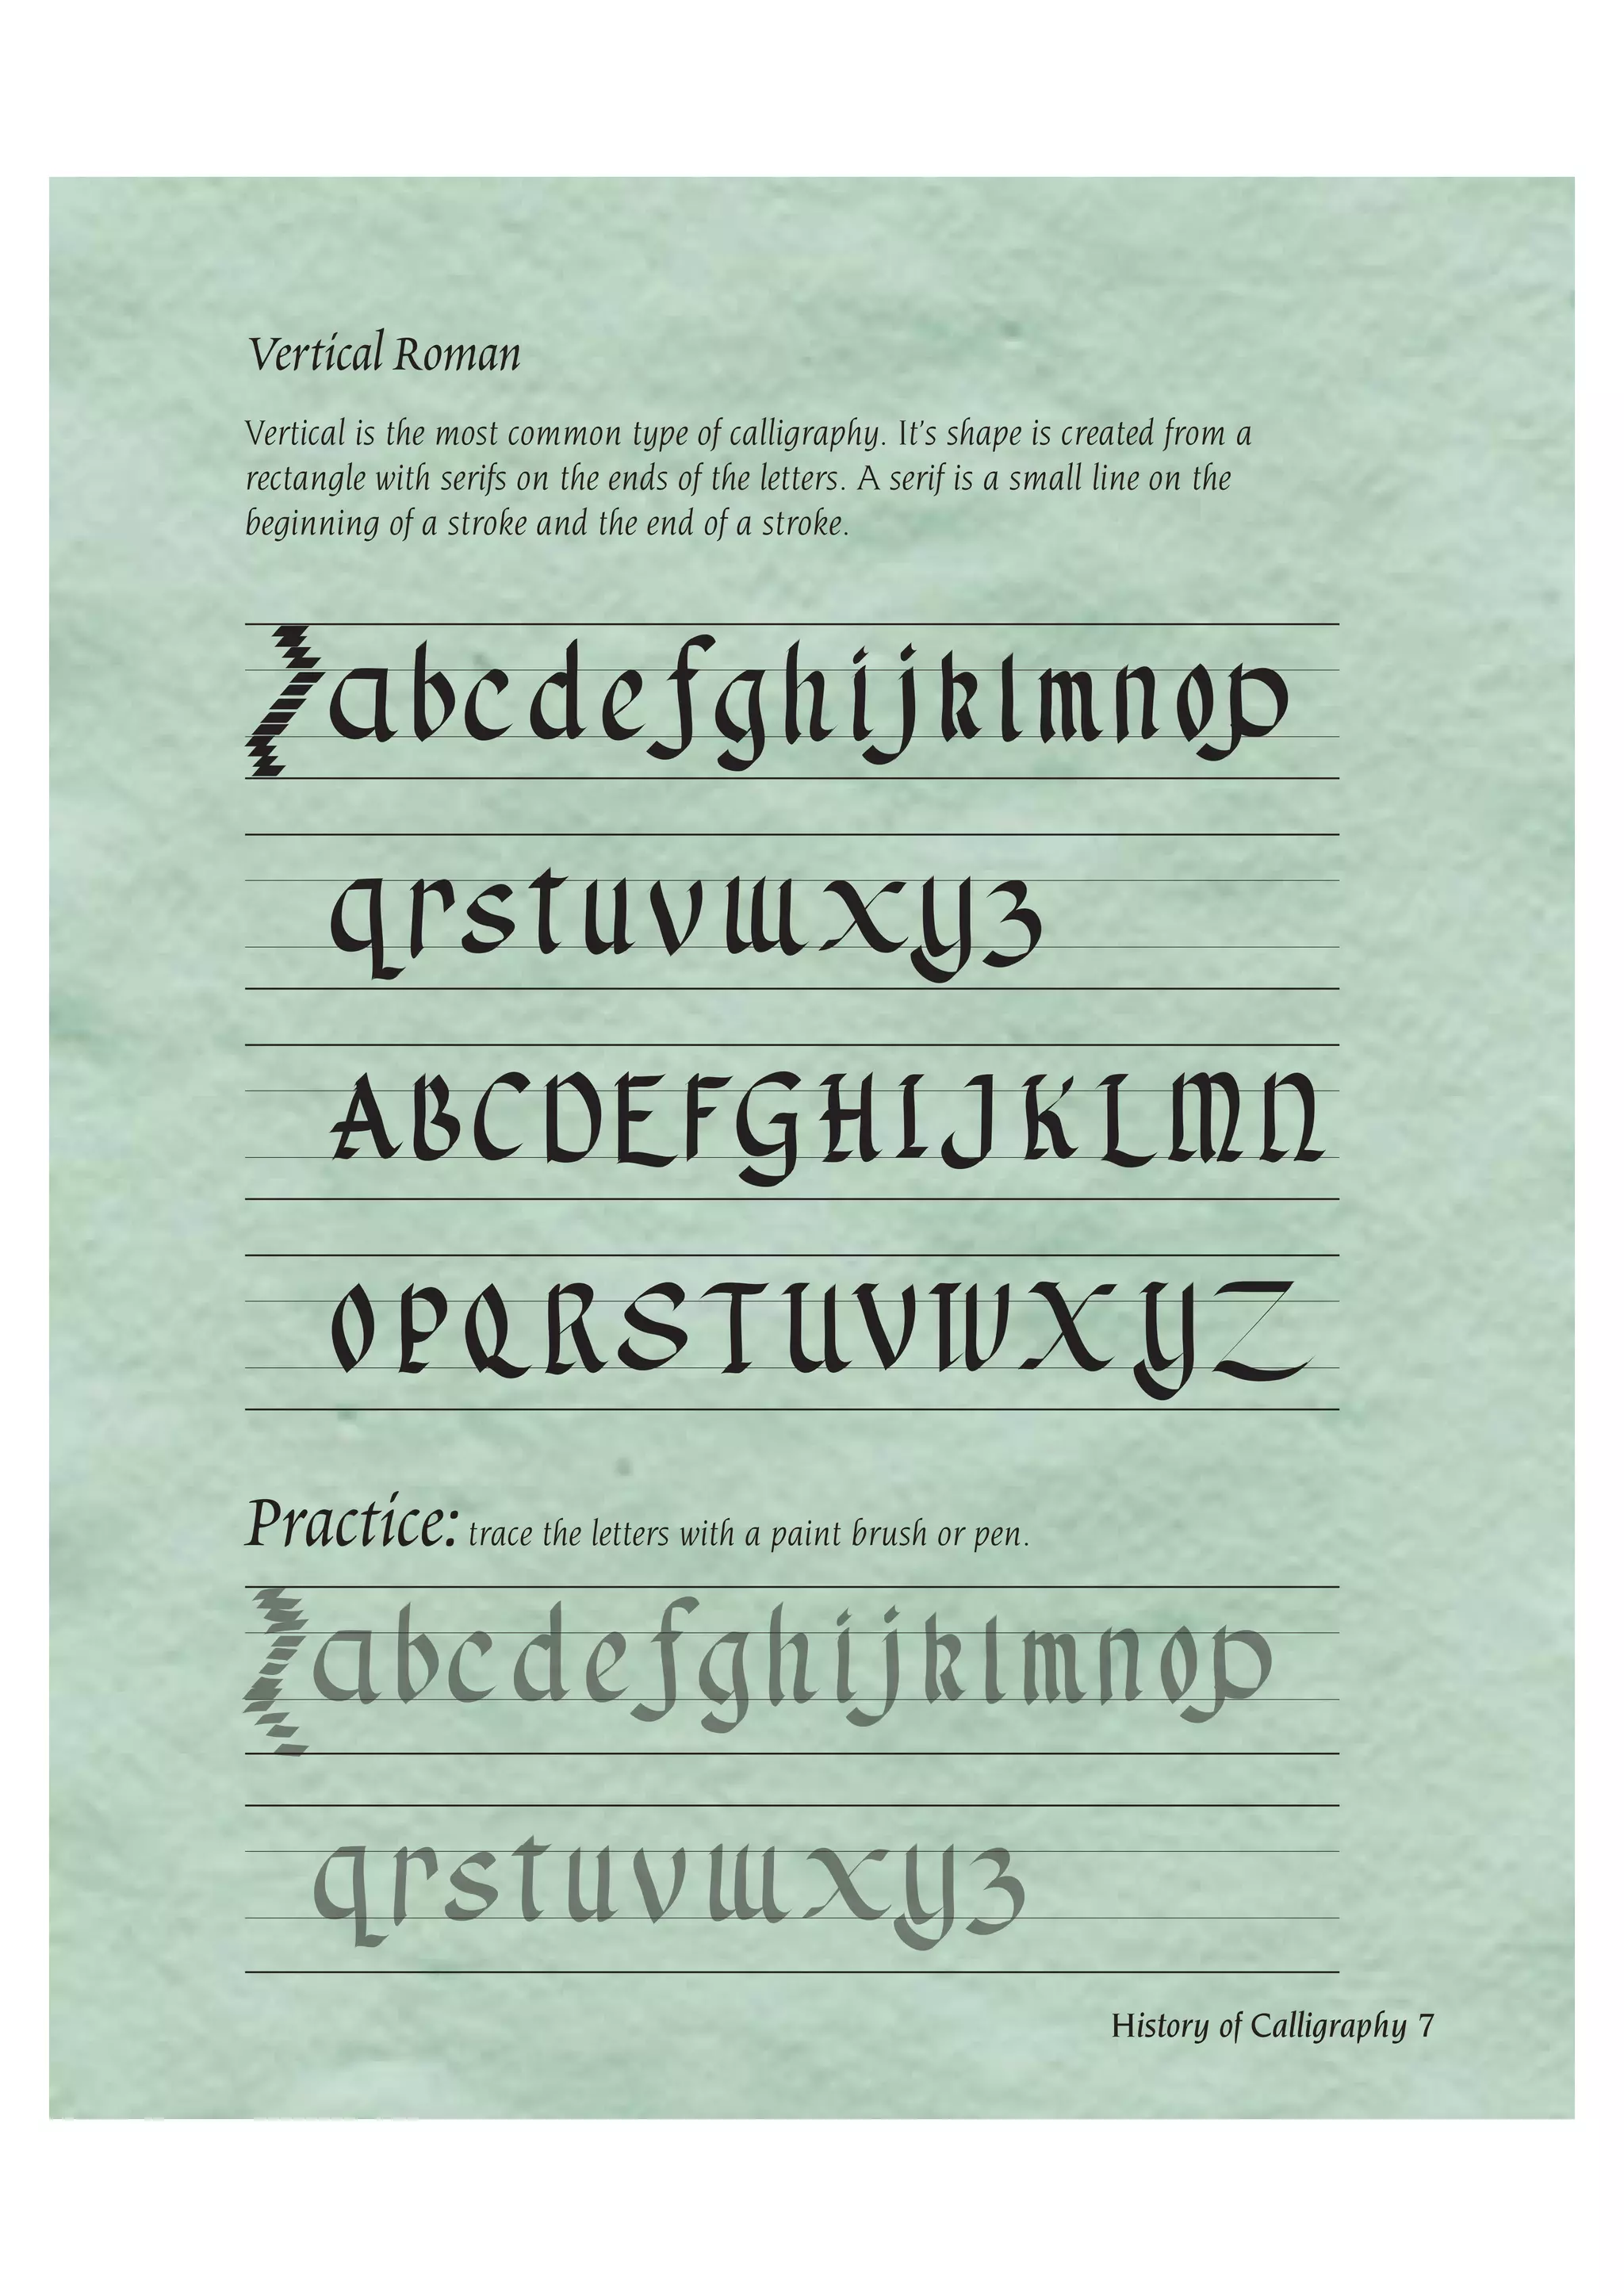 Vertical Roman
Vertical is the most common type of calligraphy. It's shape is created from a
rectangle with serifs on the ends of the letters. A serif is a small line on the
beginning of a stroke and the end of a stroke.
abcdefghijklmnop
qrstuvwxyz
ABCDEFGHIJKLMN
OPQRSTUVWXYZ
Practice: trace the letters with a paint brush or pen.
abcdefghijklmnop
qrstuvwxyz
History of Calligraphy 7